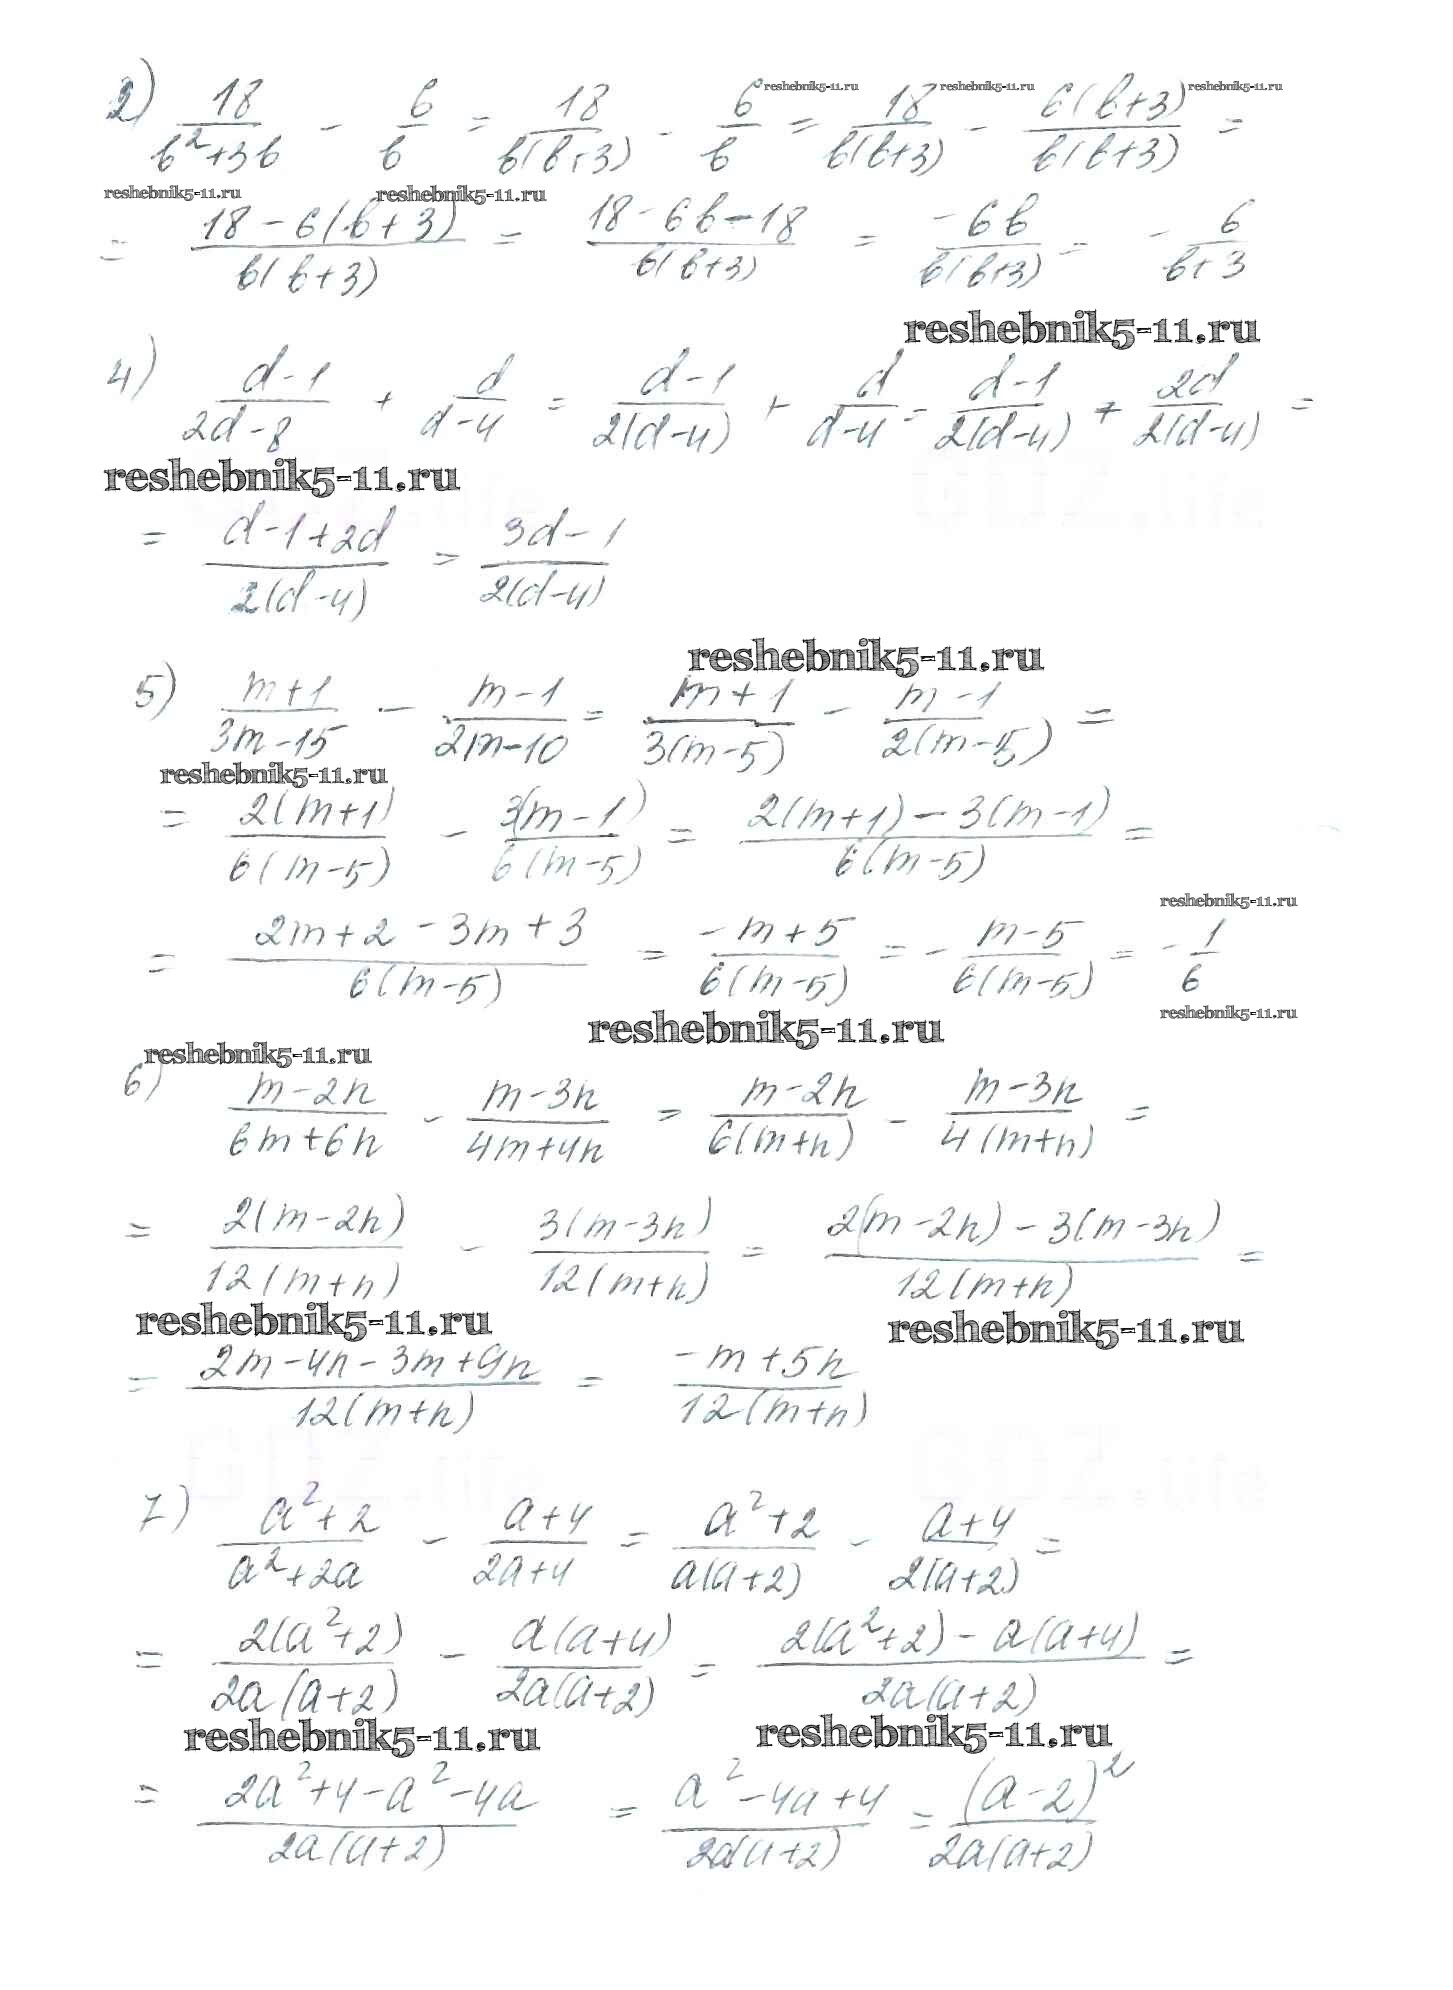 2) 18/(b²+3b) - 6/b = 18/(b(b+3)) - 6/b = 18/(b(b+3)) - 6(b+3)/(b(b+3)) =
reshebnik5-11.ru reshebnik5-11.ru reshebnik5-11.ru
reshebnik5-11.ru reshebnik5-11.ru
= (18-6(b+3))/(b(b+3)) = (18-6b-18)/(b(b+3)) = (-6b)/(b(b+3)) = - 6/(b+3)
reshebnik5-11.ru
4) (d-1)/(2d-8) + d/(d-4) = (d-1)/(2(d-4)) + d/(d-4) = (d-1)/(2(d-4)) + 2d/(2(d-4)) =
reshebnik5-11.ru
= (d-1+2d)/(2(d-4)) = (3d-1)/(2(d-4))
reshebnik5-11.ru
5) (m+1)/(3m-15) - (m-1)/(2m-10) = (m+1)/(3(m-5)) - (m-1)/(2(m-5)) =
reshebnik5-11.ru
= 2(m+1)/(6(m-5)) - 3(m-1)/(6(m-5)) = (2(m+1)-3(m-1))/(6(m-5)) =
reshebnik5-11.ru
= (2m+2-3m+3)/(6(m-5)) = (-m+5)/(6(m-5)) = - (m-5)/(6(m-5)) = - 1/6
reshebnik5-11.ru reshebnik5-11.ru
reshebnik5-11.ru
6) (m-2n)/(6m+6n) - (m-3n)/(4m+4n) = (m-2n)/(6(m+n)) - (m-3n)/(4(m+n)) =
= 2(m-2n)/(12(m+n)) - 3(m-3n)/(12(m+n)) = (2(m-2n)-3(m-3n))/(12(m+n)) =
reshebnik5-11.ru reshebnik5-11.ru
= (2m-4n-3m+9n)/(12(m+n)) = (-m+5n)/(12(m+n))
GDZ.life GDZ.life
7) (a²+2)/(a²+2a) - (a+4)/(2a+4) = (a²+2)/(a(a+2)) - (a+4)/(2(a+2)) =
= 2(a²+2)/(2a(a+2)) - a(a+4)/(2a(a+2)) = (2(a²+2)-a(a+4))/(2a(a+2)) =
reshebnik5-11.ru reshebnik5-11.ru
= (2a²+4-a²-4a)/(2a(a+2)) = (a²-4a+4)/(2a(a+2)) = (a-2)²/(2a(a+2))